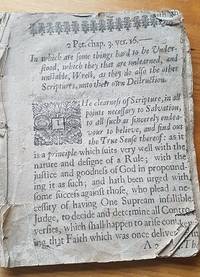 2 Pet. chap. 3. ver. 16.
In which are some things hard to be Under-
stood, which they that are unlearned, and
unstable, Wrest, as they do also the other
Scriptures, unto their own Destruction.
THe clearness of Scripture, in all
points necessary to Salvation,
to all such as sincerely endea-
vour to believe, and find out
the True Sense thereof: as it
is a principle, which suits very well with the
nature and designe of a Rule; with the
justice and goodness of God in propound-
ing it as such; and hath been urged with
some success against those, who plead a ne-
cessity of having One Supream infallible
Judge, to decide and determine all Contro-
versies, which shall happen to arise conc
ing that Faith which was once deliver
A 2 Th